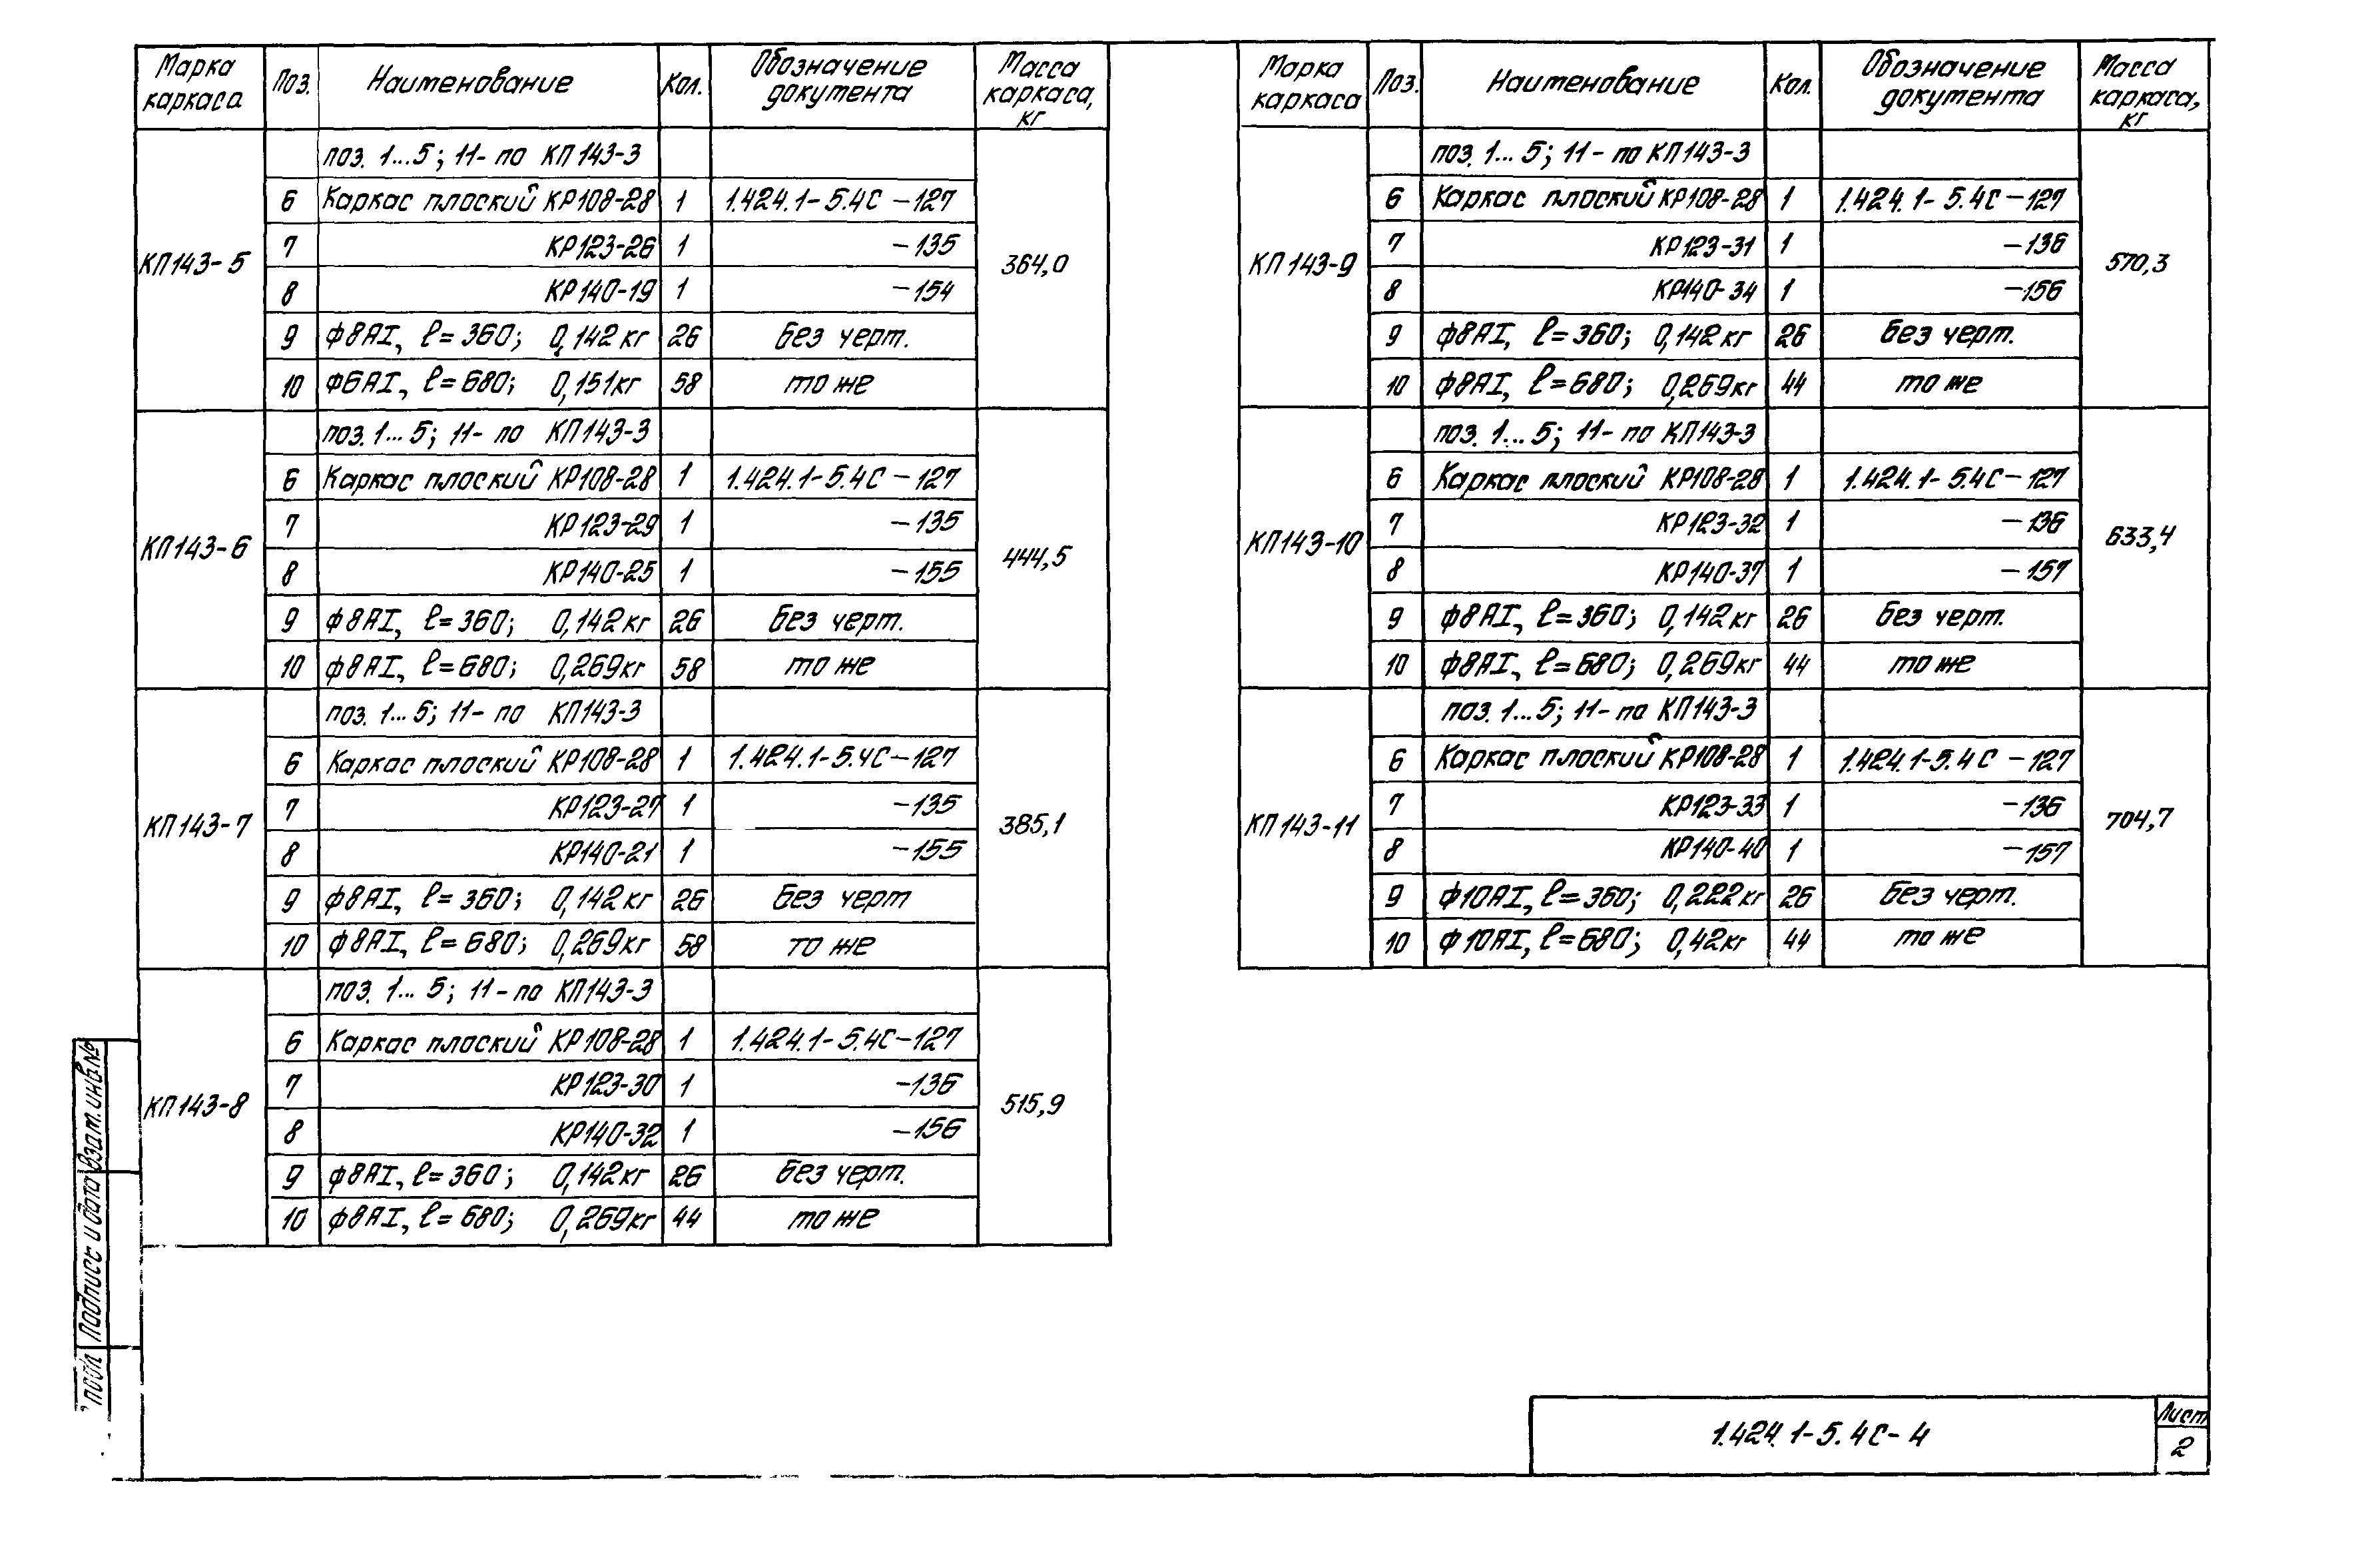 Марка каркаса Поз. Наименование Кол. Обозначение документа Масса каркаса, кг
КП143-5 364,0
поз. 1...5; 11- по КП143-3
6 Каркас плоский КР108-28 1 1.424.1-5.4С -127
7 КР123-26 1 -135
8 КР140-19 1 -154
9 ф8АI, ℓ=360; 0,142кг 26 без черт.
10 ф6АI, ℓ=680; 0,151кг 58 то же
КП143-6 444,5
поз. 1...5; 11- по КП143-3
6 Каркас плоский КР108-28 1 1.424.1-5.4С -127
7 КР123-29 1 -135
8 КР140-25 1 -155
9 ф8АI, ℓ=360; 0,142кг 26 без черт.
10 ф8АI, ℓ=680; 0,269кг 58 то же
КП143-7 385,1
поз. 1...5; 11- по КП143-3
6 Каркас плоский КР108-28 1 1.424.1-5.4С-127
7 КР123-27 1 -135
8 КР140-21 1 -155
9 ф8АI, ℓ=360; 0,142кг 26 без черт
10 ф8АI, ℓ=680; 0,269кг 58 то же
КП143-8 515,9
поз. 1...5; 11- по КП143-3
6 Каркас плоский КР108-28 1 1.424.1-5.4С-127
7 КР123-30 1 -136
8 КР140-32 1 -156
9 ф8АI, ℓ=360; 0,142кг 26 без черт.
10 ф8АI, ℓ=680; 0,269кг 44 то же
Марка каркаса Поз. Наименование Кол. Обозначение документа Масса каркаса, кг
КП143-9 570,3
поз. 1...5; 11- по КП143-3
6 Каркас плоский КР108-28 1 1.424.1-5.4С-127
7 КР123-31 1 -136
8 КР140-34 1 -156
9 ф8АI, ℓ=360; 0,142кг 26 без черт.
10 ф8АI, ℓ=680; 0,269кг 44 то же
КП143-10 633,4
поз. 1...5; 11- по КП143-3
6 Каркас плоский КР108-28 1 1.424.1-5.4С-127
7 КР123-32 1 -136
8 КР140-37 1 -157
9 ф8АI, ℓ=360; 0,142кг 26 без черт.
10 ф8АI, ℓ=680; 0,269кг 44 то же
КП143-11 704,7
поз. 1...5; 11- по КП143-3
6 Каркас плоский КР108-28 1 1.424.1-5.4С -127
7 КР123-33 1 -136
8 КР140-40 1 -157
9 ф10АI, ℓ=360; 0,222кг 26 без черт.
10 ф10АI, ℓ=680; 0,42кг 44 то же
Взам.инв.№
Подпись и дата
подл
1.424.1-5.4С-4
Лист
2